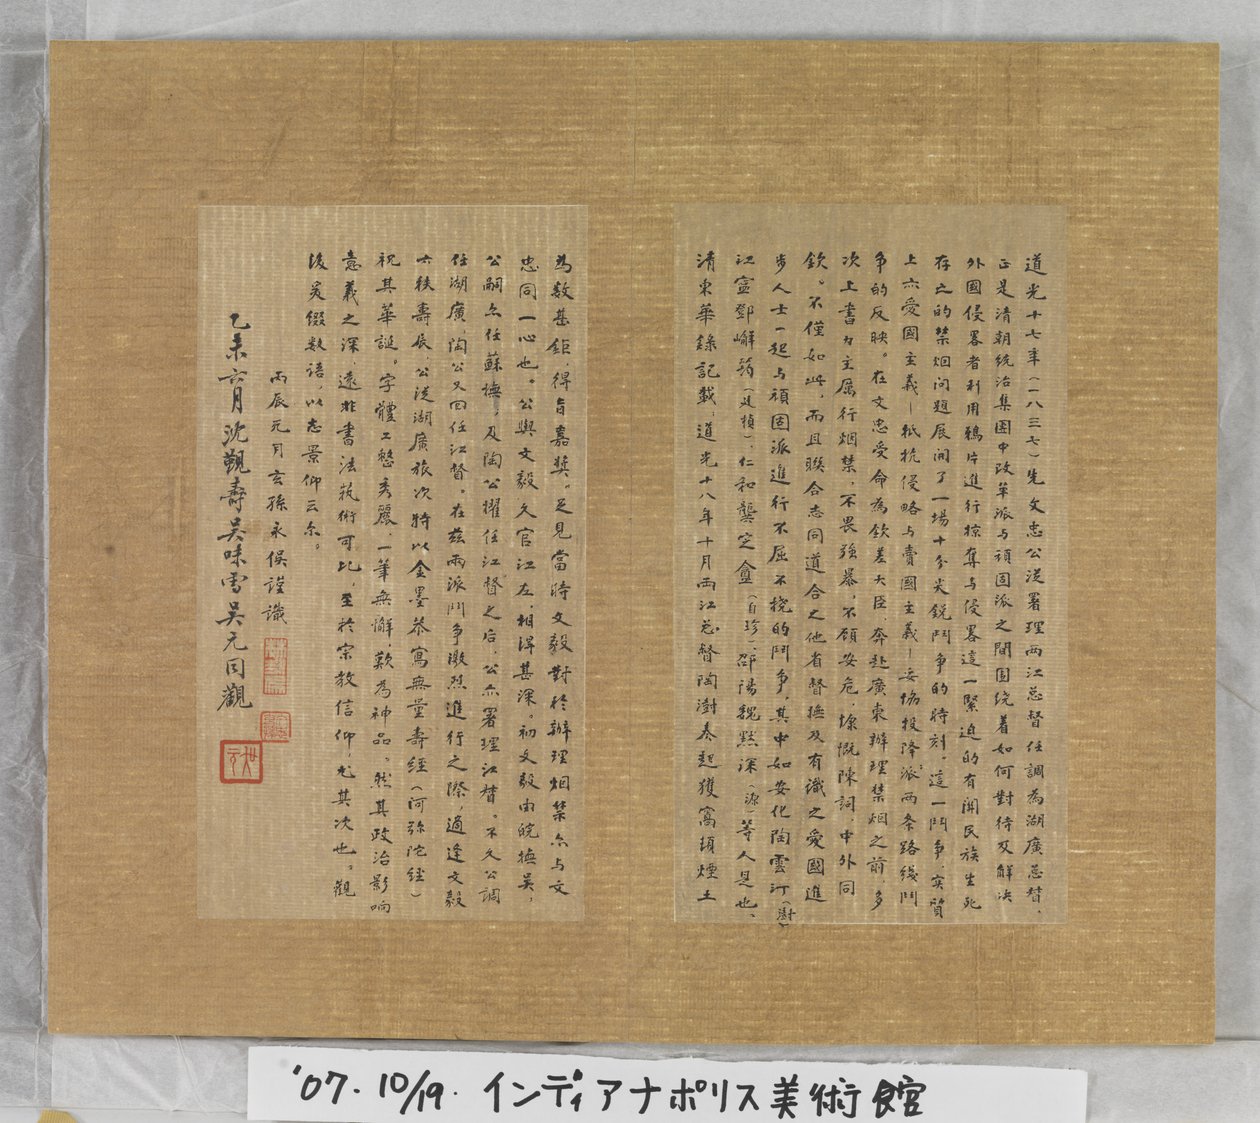 道光十七年（一八三七）先文忠公從署理两江总督任調為湖廣总督，
正是清朝統治集團中改革派与頑固派之間圍绕着如何對待及解决
外國侵畧者利用鴉片進行掠奪与侵畧這一緊迫的有関民族生死
存亡的禁烟问題展開了一場十分尖鋭鬥争的時刻。這一鬥争，实質
上六愛國主義—抵抗侵略与賣國主義—妥協投降派两条路綫鬥
争的反映。在文忠受命為欽差大臣，奔赴廣東辦理禁烟之前，多
次上書力主厲行烟禁，不畏強暴，不顾安危，慷慨陳詞，中外同
欽。不僅如此，而且聯合志同道合之他省督撫及有識之愛國進
步人士一起与頑固派進行不屈不挠的鬥争，其中如安化陶雲汀（澍）
江寧鄧嶰筠（廷楨），仁和龔定盦（自珍），邵陽魏默深（源）等人是也，
清東華錄記載，道光十八年十月两江总督陶澍奏起獲窩頓煙土
為数甚鉅，得旨嘉獎。足見當時文毅對於辦理烟禁亦与文
忠同一心也。公與文毅久官江左，相得甚深。初文毅由皖撫吳，
公嗣亦任蘇撫，及陶公擢任江督之后，公亦署理江督。不久公調
任湖廣，陶公又回任江督。在兹兩派鬥争激烈進行之際，適逢文毅
六秩壽辰，公從湖廣旅次特以金墨恭寫無量壽經（阿弥陀經）
祝其華誕。字體工整秀麗，一筆無懈，歎為神品。然其政治影响
意義之深，遠非書法藝術可比，至於宗教信仰尤其次也。觀
後爰綴数語，以志景仰云尔。
丙辰元月玄孫永俁謹識
乙未六月沈觀壽吳味雪吳元同觀
'07.10/19. インディアナポリス美術館